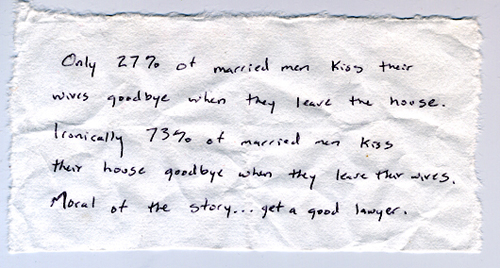 Only 27% of married men kiss their
wives goodbye when they leave the house.
Ironically 73% of married men kiss
their house goodbye when they leave their wives.
Moral of the story... get a good lawyer.